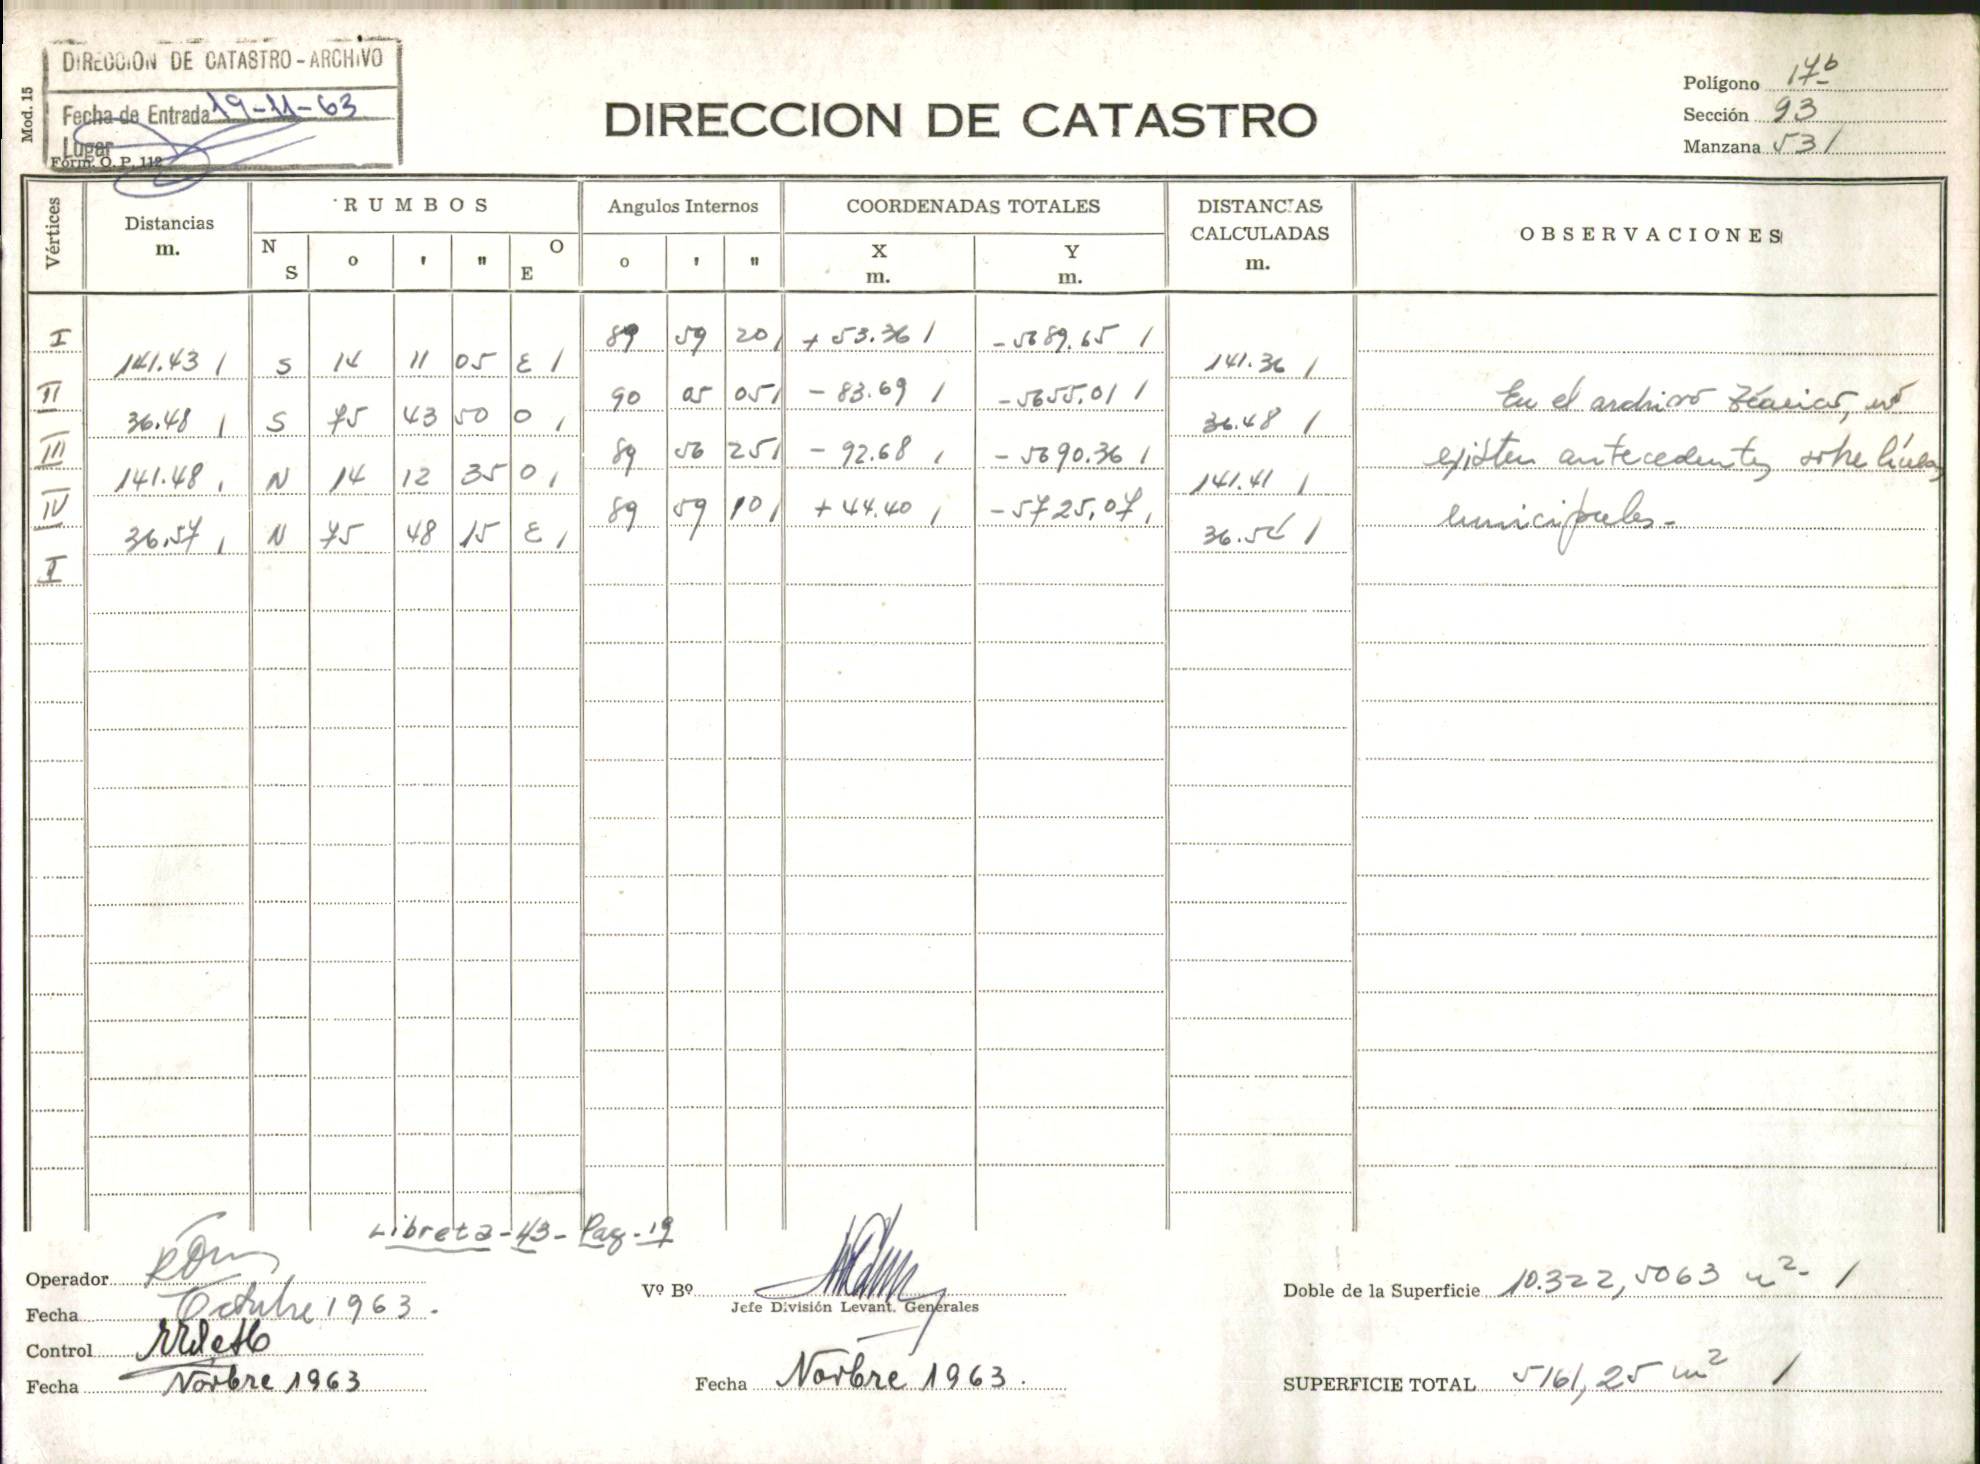 DIRECCION DE CATASTRO - ARCHIVO
Fecha de Entrada 19-11-63
Lugar
Form. O. P. 112
Mod. 15
DIRECCION DE CATASTRO
Polígono 17b
Sección 93
Manzana 531
Vértices
Distancias
m.
RUMBOS
N S
o ' "
O E
Angulos Internos
o ' "
COORDENADAS TOTALES
X
m.
Y
m.
DISTANCIAS
CALCULADAS
m.
OBSERVACIONES
I 89 59 20 + 53.36 - 5689.65
141.43 S 14 11 05 E 141.36
II 90 05 05 - 83.69 - 5655.01
36.48 S 75 43 50 O 36.48
III 89 56 25 - 92.68 - 5690.36
141.48 N 14 12 35 O 141.41
IV 89 59 10 + 44.40 - 5725,07
36.57 N 75 48 15 E
I
En el archivo técnico, no
existen antecedentes sobre líneas
municipales-
Libreta-43- Pag.-19
Operador
Fecha Octubre 1963.
Control
Fecha Novbre 1963
Vº Bº
Jefe División Levant. Generales
Fecha Novbre 1963.
Doble de la Superficie 10.322,5063 m²-
SUPERFICIE TOTAL 5161,25 m²